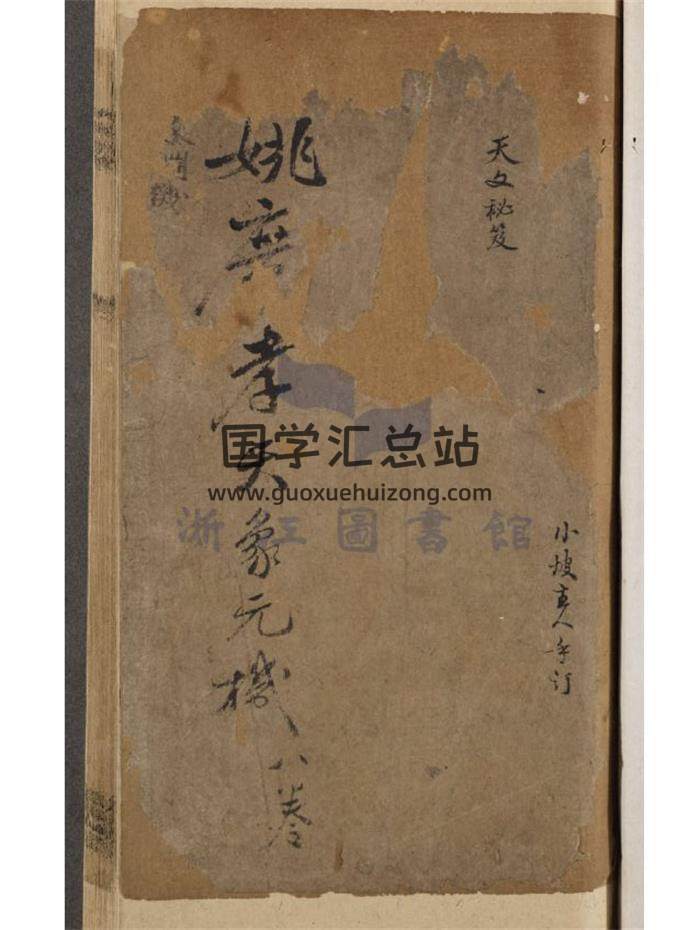 天文秘笈
小坡真人手订
姚廣孝天象元機八卷
国学汇总站
www.guoxuehuizong.com
浙江圖書館